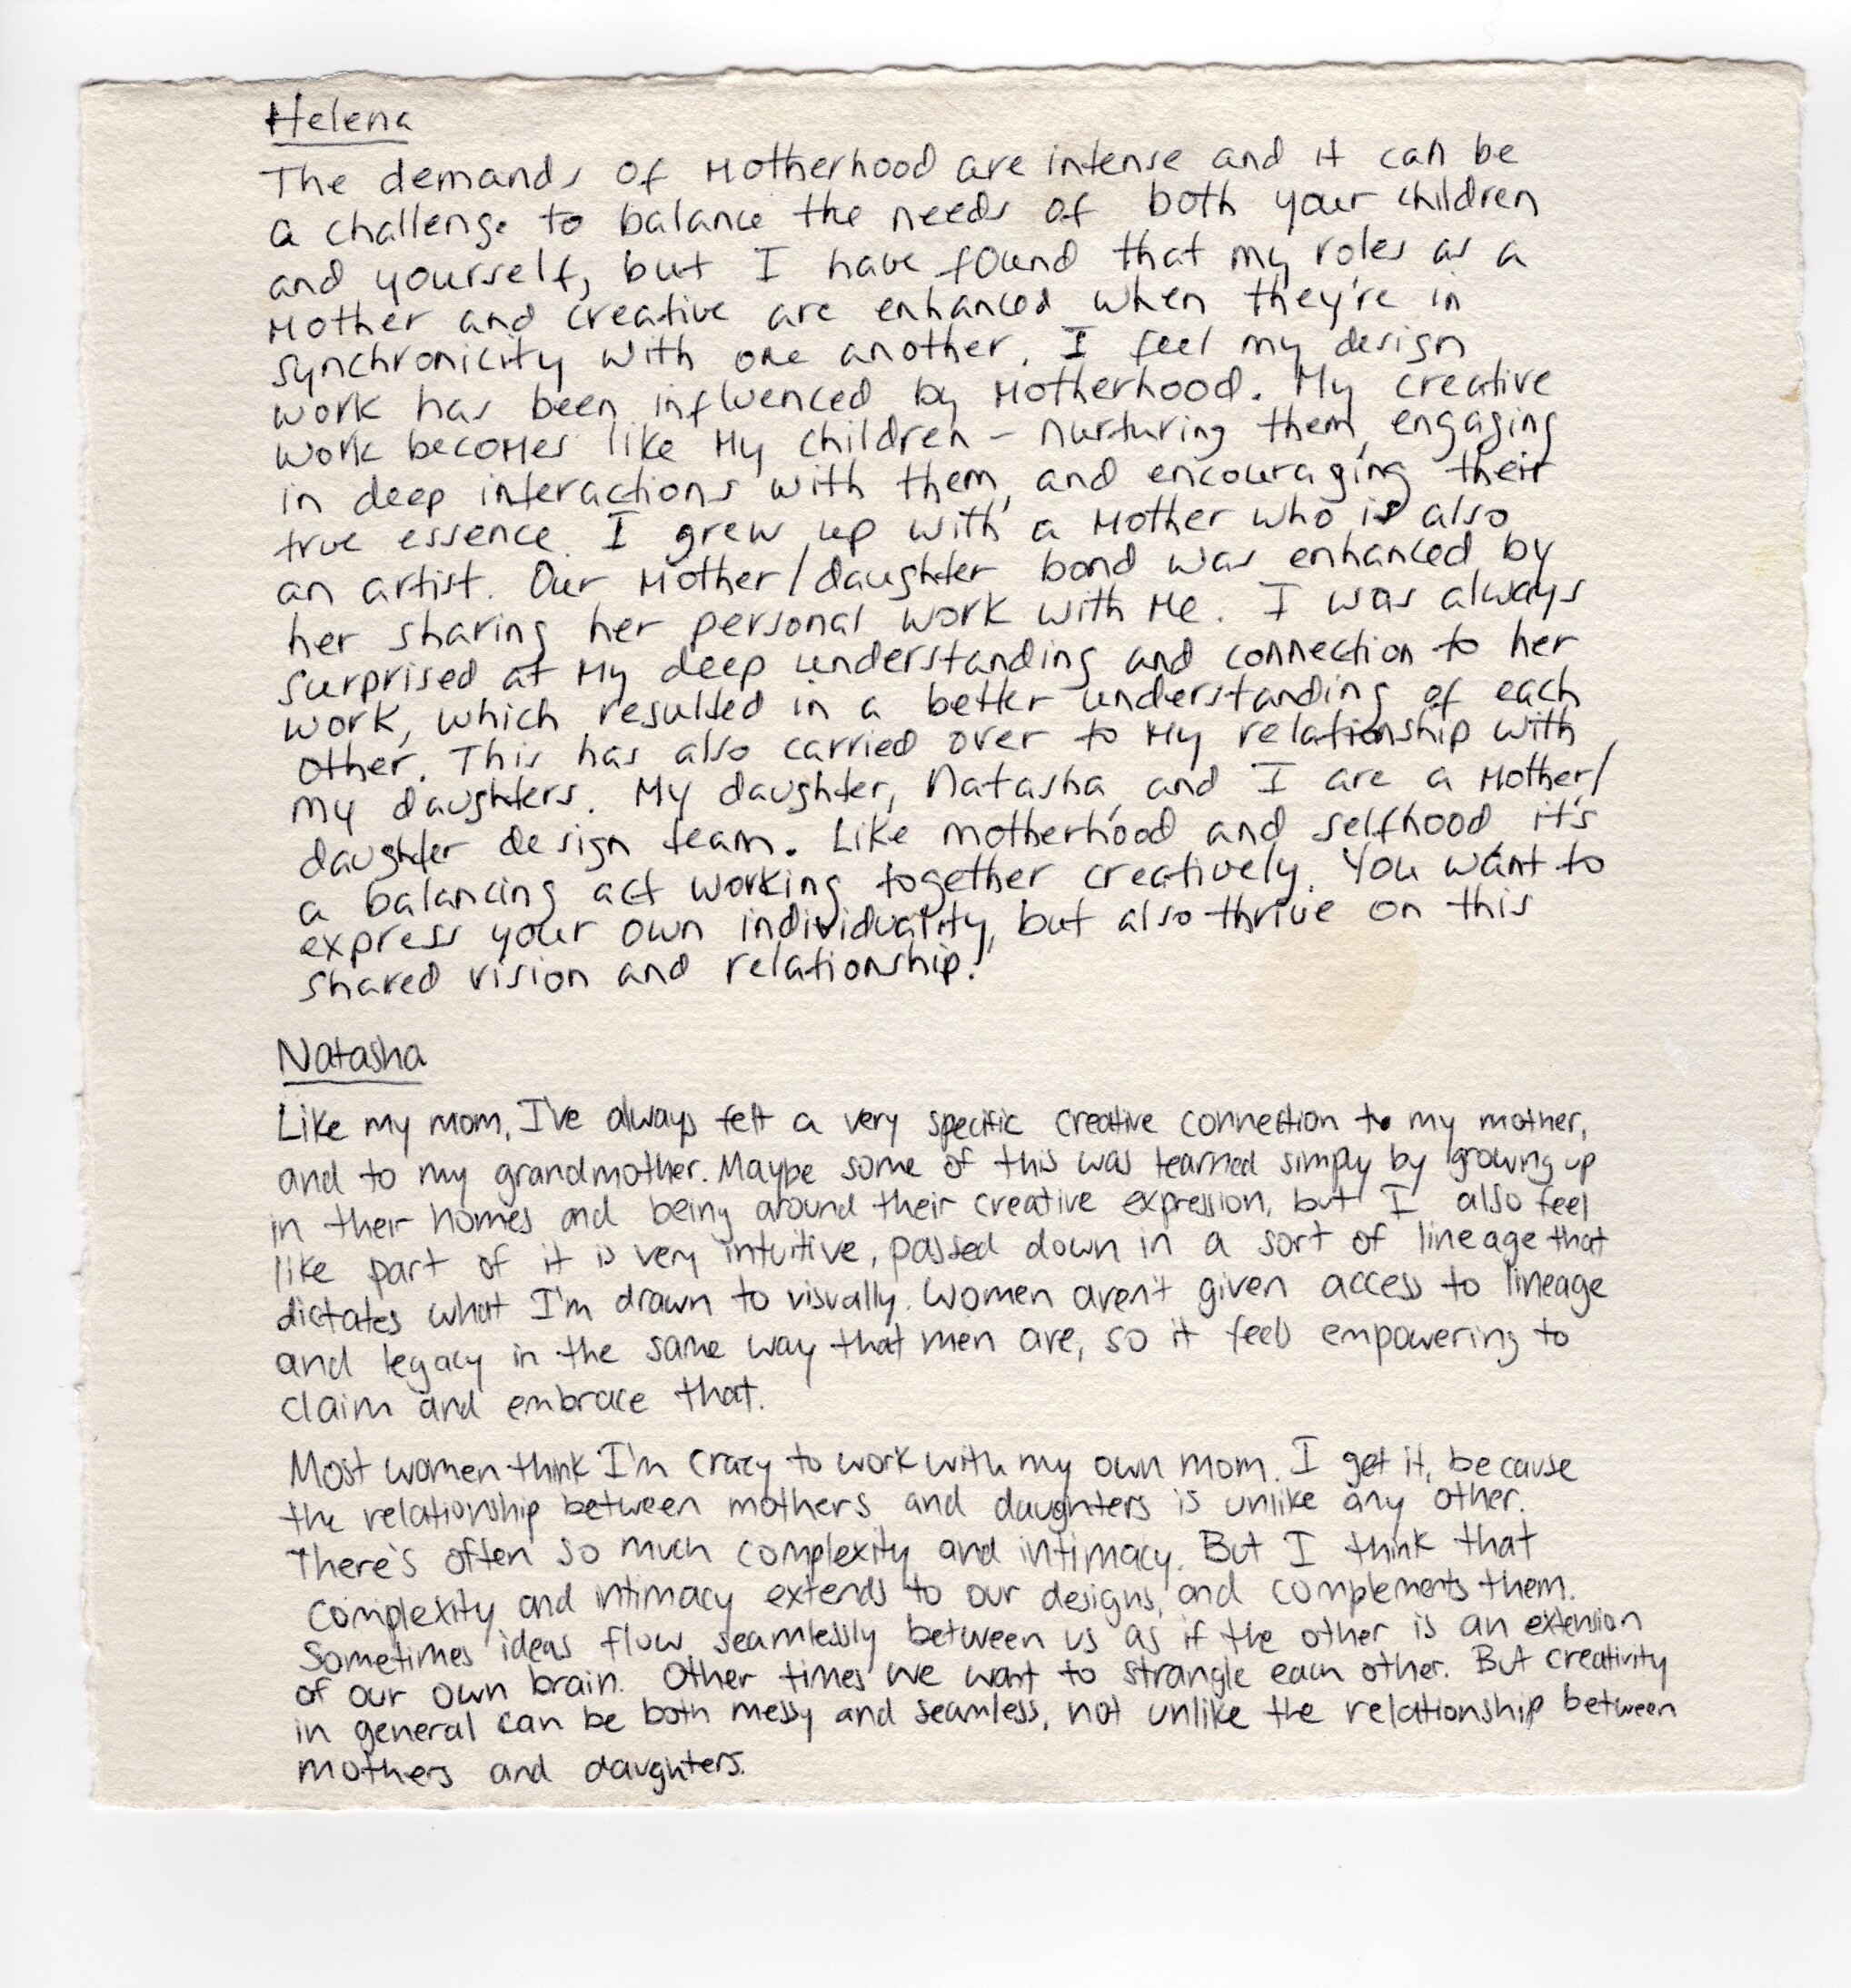 Helena
The demands of Motherhood are intense and it can be
a challenge to balance the needs of both your children
and yourself, but I have found that my roles as a
Mother and creative are enhanced when they're in
synchronicity with one another. I feel my design
work has been influenced by Motherhood. My creative
work becomes like My children - nurturing them, engaging
in deep interactions with them, and encouraging their
true essence. I grew up with a Mother who is also
an artist. Our Mother/daughter bond was enhanced by
her sharing her personal work with Me. I was always
surprised at My deep understanding and connection to her
work, which resulted in a better understanding of each
other. This has also carried over to My relationship with
my daughters. My daughter, Natasha, and I are a Mother/
daughter design team. Like motherhood and selfhood, it's
a balancing act working together creatively. You want to
express your own individuality, but also thrive on this
shared vision and relationship.
Natasha
Like my mom, I've always felt a very specific creative connection to my mother,
and to my grandmother. Maybe some of this was learned simply by growing up
in their homes and being around their creative expression, but I also feel
like part of it is very intuitive, passed down in a sort of lineage that
dictates what I'm drawn to visually. Women aren't given access to lineage
and legacy in the same way that men are, so it feels empowering to
claim and embrace that.
Most women think I'm crazy to work with my own mom. I get it, because
the relationship between mothers and daughters is unlike any other.
There's often so much complexity and intimacy. But I think that
complexity and intimacy extends to our designs, and complements them.
Sometimes ideas flow seamlessly between us as if the other is an extension
of our own brain. Other times we want to strangle each other. But creativity
in general can be both messy and seamless, not unlike the relationship between
mothers and daughters.